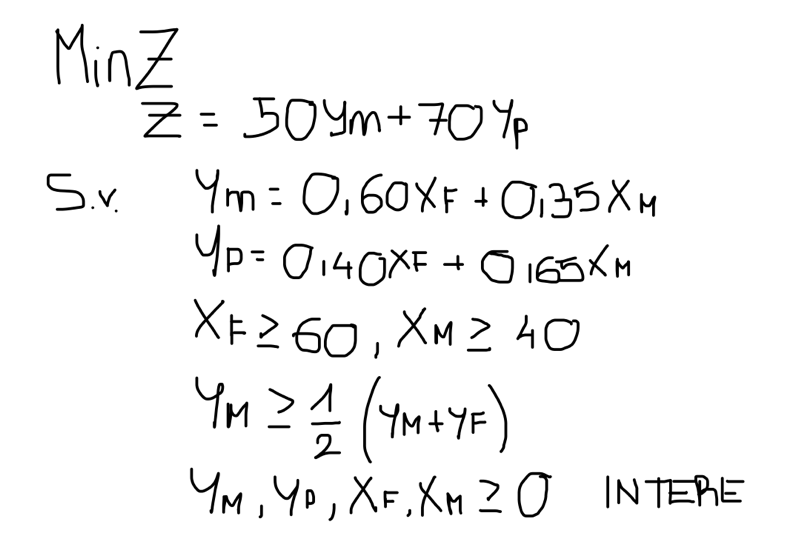 Min Z
Z = 50 Ym + 70 Yp
S.v. Ym = 0,60 XF + 0,35 XM
Yp = 0,40 XF + 0,65 XM
XF ≥ 60, XM ≥ 40
YM ≥ 1/2 (YM + YF)
YM, YP, XF, XM ≥ 0 INTERE